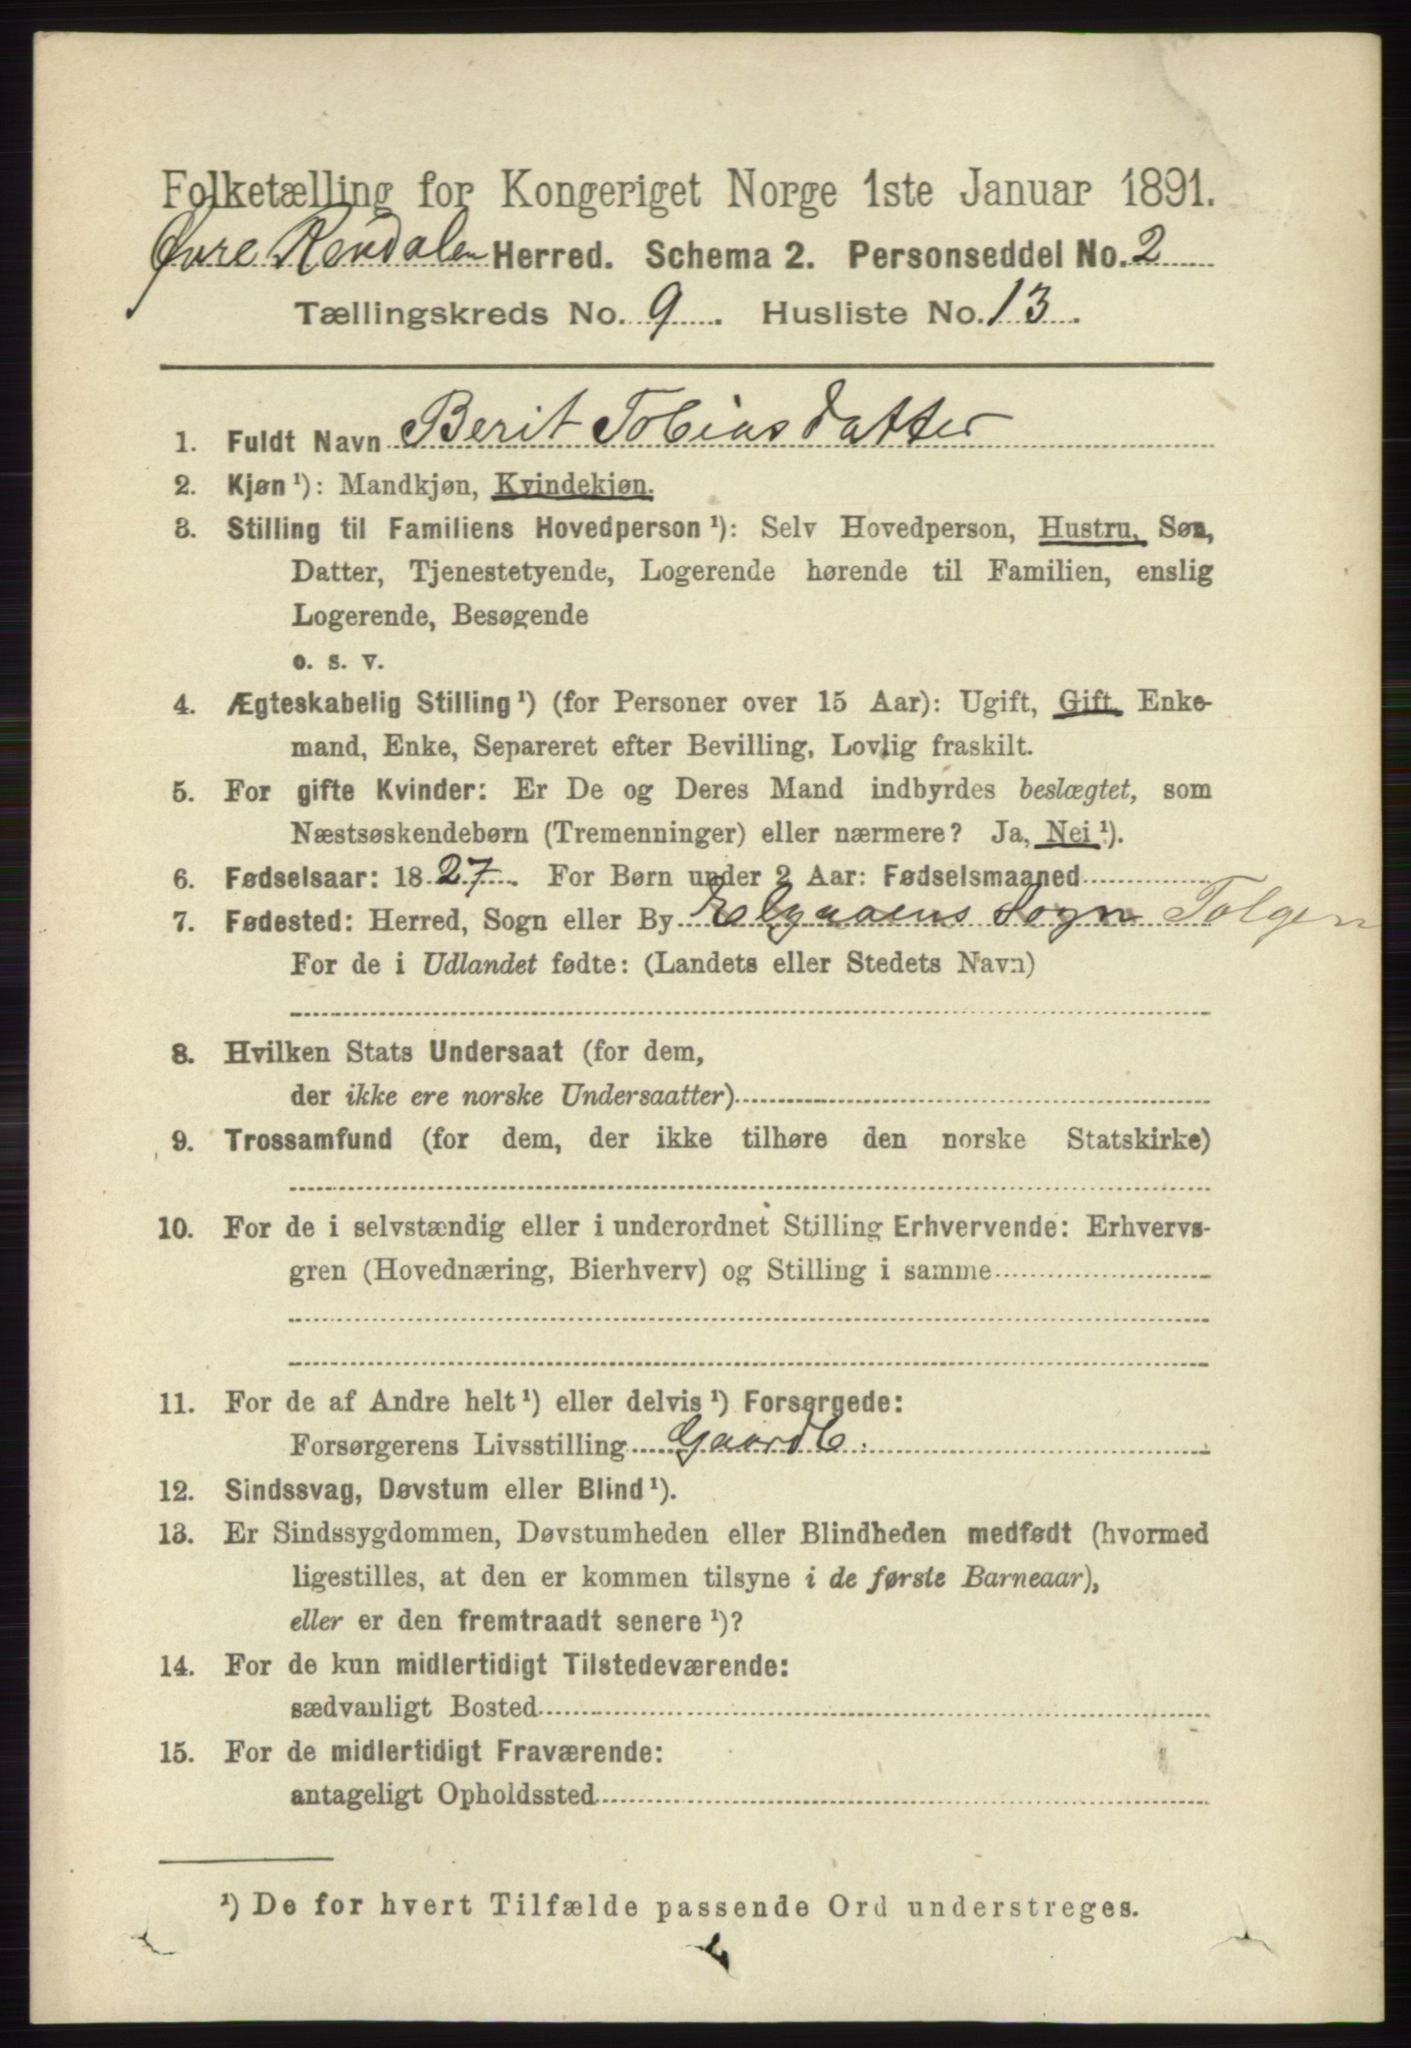 Folketælling for Kongeriget Norge 1ste Januar 1891.
Øvre Rendalen Herred. Schema 2. Personseddel No. 2
Tællingskreds No. 9. Husliste No. 13.
1. Fuldt Navn Berit Tobiasdatter
2. Kjøn ¹): Mandkjøn, Kvindekjøn.
3. Stilling til Familiens Hovedperson ¹): Selv Hovedperson, Hustru, Søn,
Datter, Tjenestetyende, Logerende hørende til Familien, enslig
Logerende, Besøgende
o. s. v.
4. Ægteskabelig Stilling ¹) (for Personer over 15 Aar): Ugift, Gift, Enke-
mand, Enke, Separeret efter Bevilling, Lovlig fraskilt.
5. For gifte Kvinder: Er De og Deres Mand indbyrdes beslægtet, som
Næstsøskendebørn (Tremenninger) eller nærmere? Ja, Nei ¹).
6. Fødselsaar: 1827. For Børn under 2 Aar: Fødselsmaaned
7. Fødested: Herred, Sogn eller By Sogn Tolgen
For de i Udlandet fødte: (Landets eller Stedets Navn)
8. Hvilken Stats Undersaat (for dem,
der ikke ere norske Undersaatter)
9. Trossamfund (for dem, der ikke tilhøre den norske Statskirke)
10. For de i selvstændig eller i underordnet Stilling Erhvervende: Erhvervs-
gren (Hovednæring, Bierhverv) og Stilling i samme
11. For de af Andre helt ¹) eller delvis ¹) Forsørgede:
Forsørgerens Livsstilling Gaardb.
12. Sindssvag, Døvstum eller Blind ¹).
13. Er Sindssygdommen, Døvstumheden eller Blindheden medfødt (hvormed
ligestilles, at den er kommen tilsyne i de første Barneaar),
eller er den fremtraadt senere ¹)?
14. For de kun midlertidigt Tilstedeværende:
sædvanligt Bosted
15. For de midlertidigt Fraværende:
antageligt Opholdssted
¹) De for hvert Tilfælde passende Ord understreges.